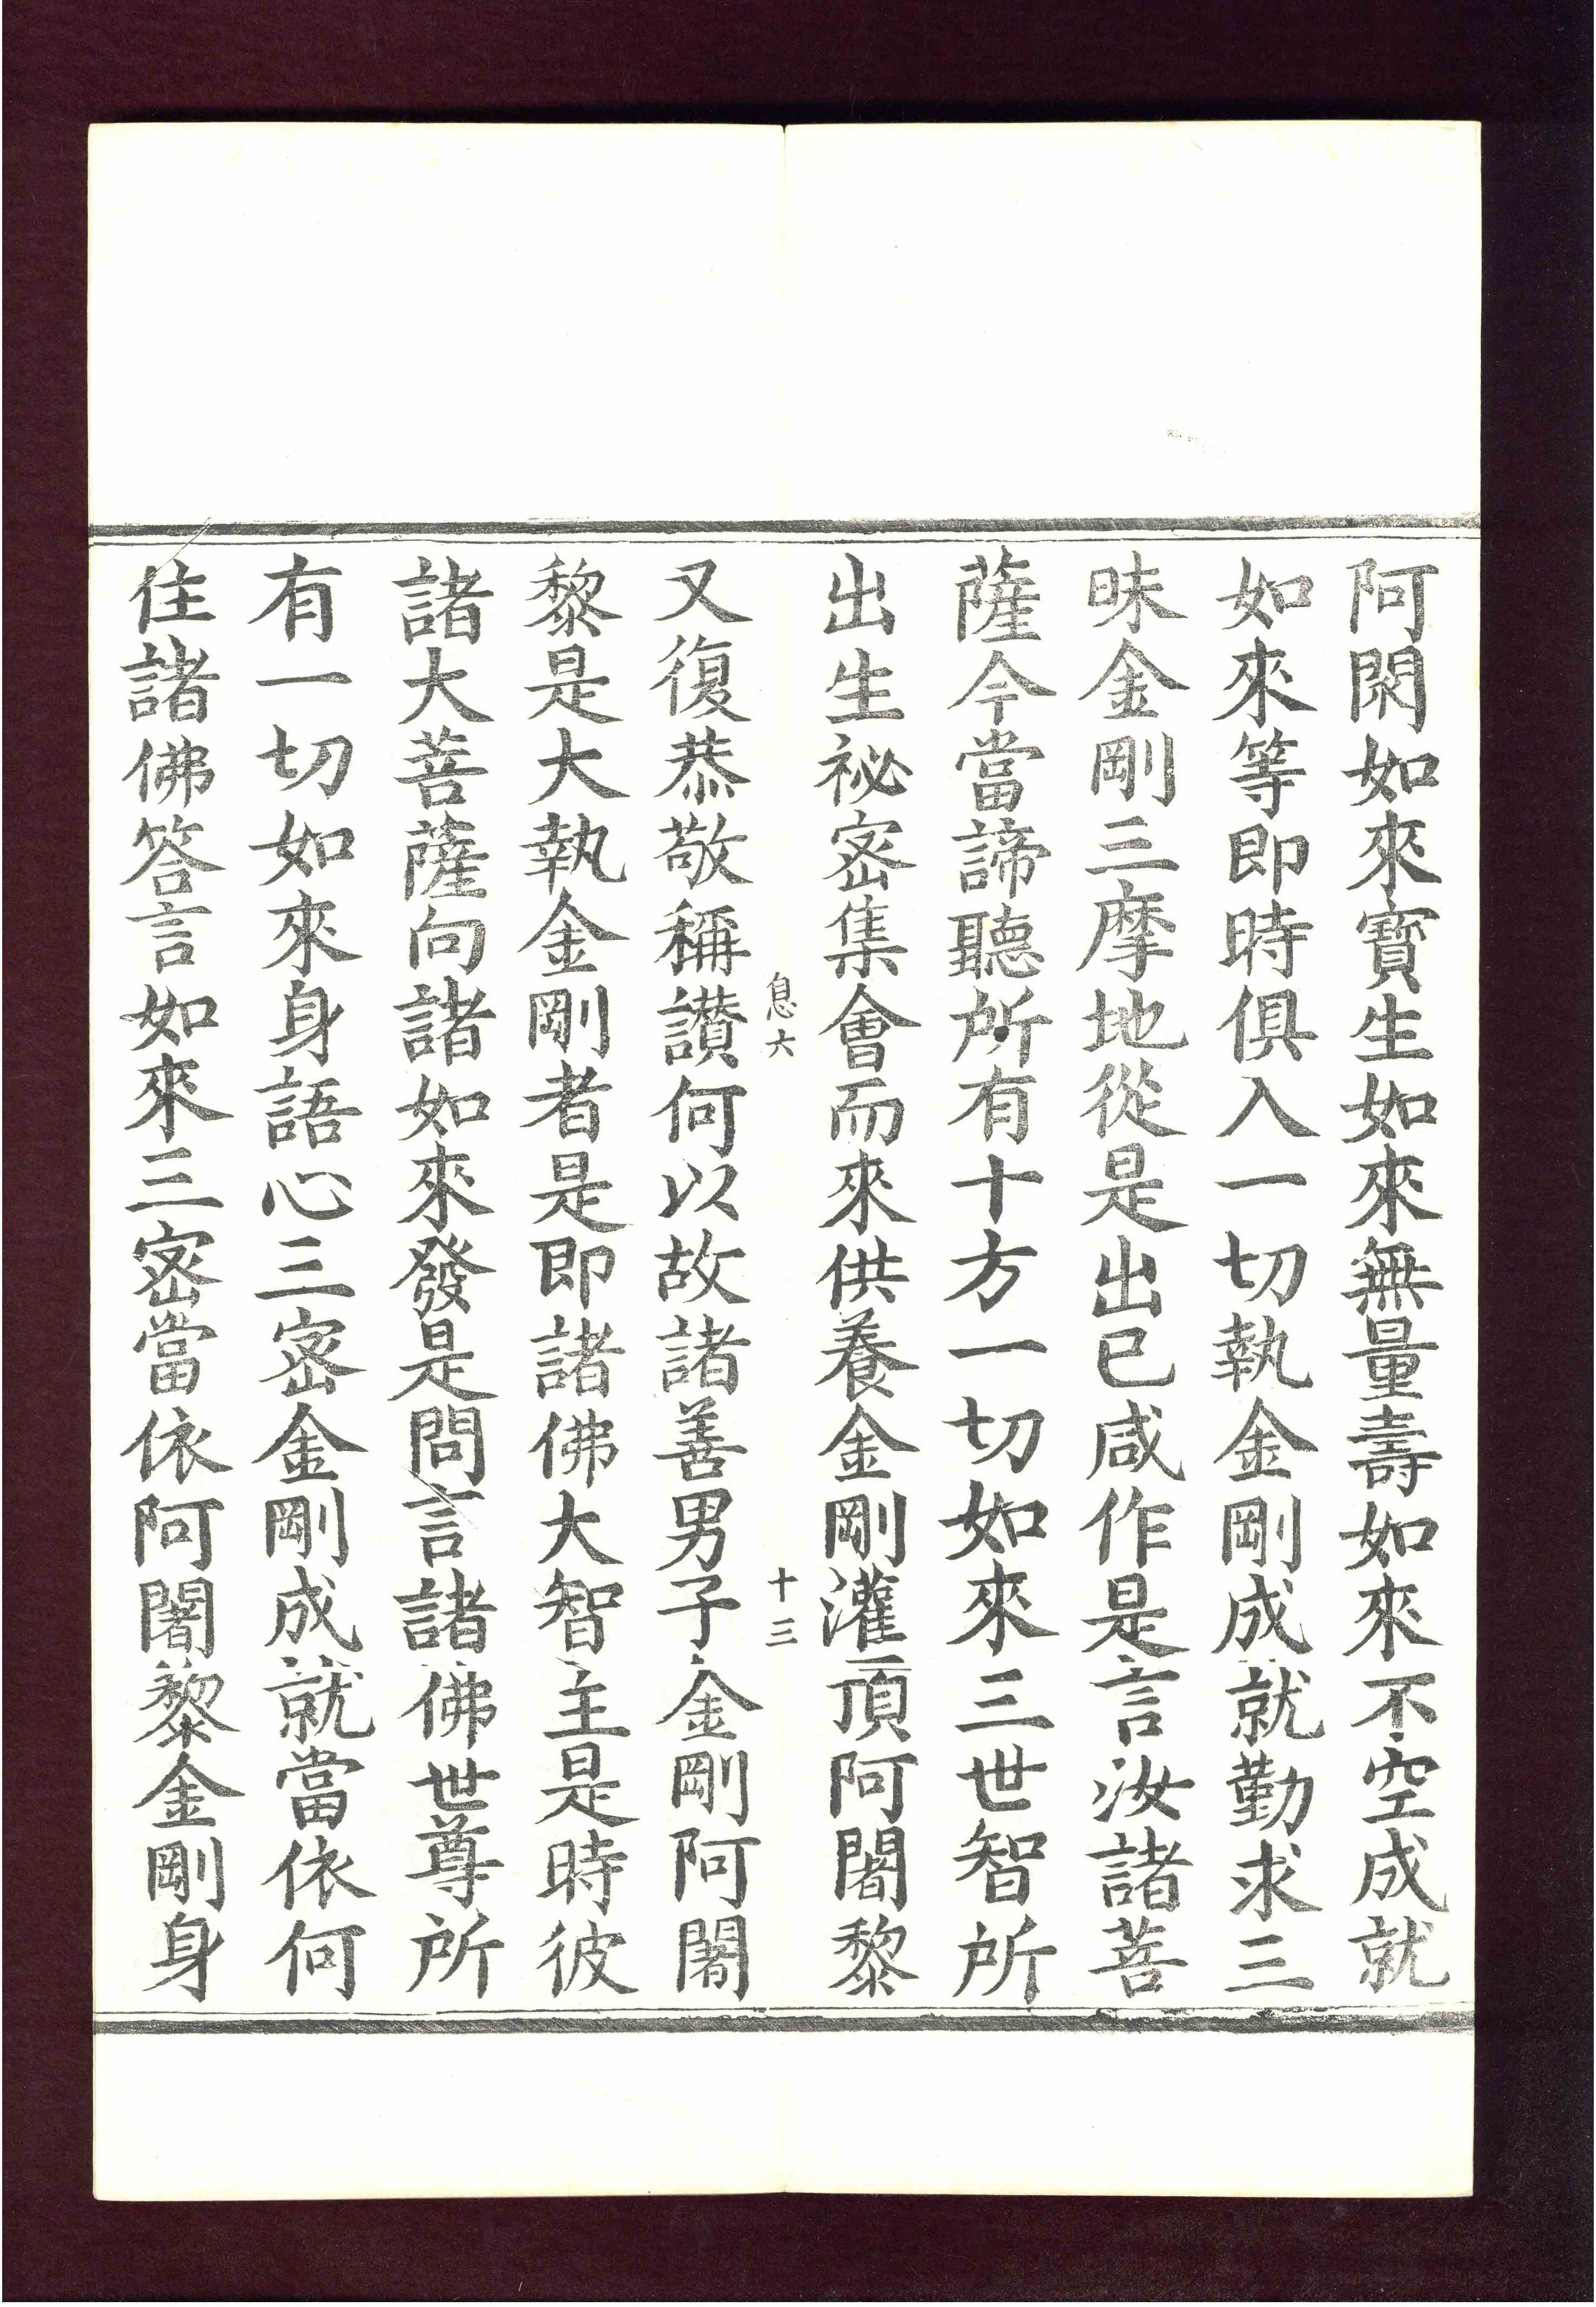 阿閦如來寶生如來無量壽如來不空成就
如來等即時俱入一切執金剛成就勤求三
昧金剛三摩地從是出已咸作是言汝諸菩
薩今當諦聽所有十方一切如來三世智所
出生祕密集會而來供養金剛灌頂阿闍黎
息六
十三
又復恭敬稱讚何以故諸善男子金剛阿闍
黎是大執金剛者是即諸佛大智主是時彼
諸大菩薩向諸如來發是問言諸佛世尊所
有一切如來身語心三密金剛成就當依何
住諸佛答言如來三密當依阿闍黎金剛身